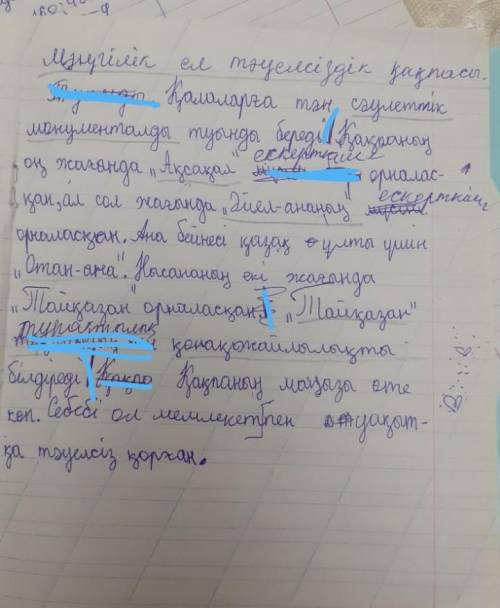 Мәңгілік ел тәуелсіздік қақпасы.
Туынды. Қалаларға тән сәулеттік
монументалды туынды береді. Қақпаның
оң жағында „Ақсақал" ескерткіші орналас-
қан, ал сол жағында „Әйел-ананың" ескерткіші
орналасқан. Ана бейнесі қазақ ұлты үшін
„Отан-ана". Нысананың екі жағында
„Тайқазан" орналасқан. „Тайқазан"
тұрақтылық қонақжайлылықты
білдіреді. Қақпа Қақпаның маңызы өте
көп. Себебі ол мемлекетпен уақыт-
қа тәуелсіз қорған.